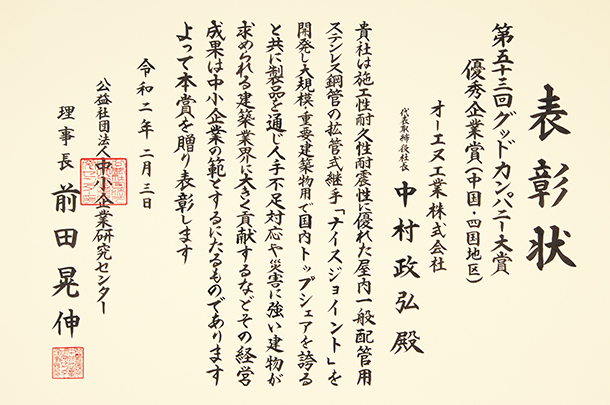 表彰状
第五十三回グッドカンパニー大賞
優秀企業賞（中国・四国地区）
オーエヌ工業株式会社
代表取締役社長 中村政弘殿
貴社は施工性耐久性耐震性に優れた屋内一般配管用
ステンレス鋼管の拡管式継手「ナイスジョイント」を
開発し大規模・重要建築物用で国内トップシェアを誇る
と共に製品を通じ人手不足対応や災害に強い建物が
求められる建築業界に大きく貢献するなどその経営
成果は中小企業の範とするにたるものであります
よって本賞を贈り表彰します
令和二年二月三日
公益社団法人中小企業研究センター
理事長 前田晃伸